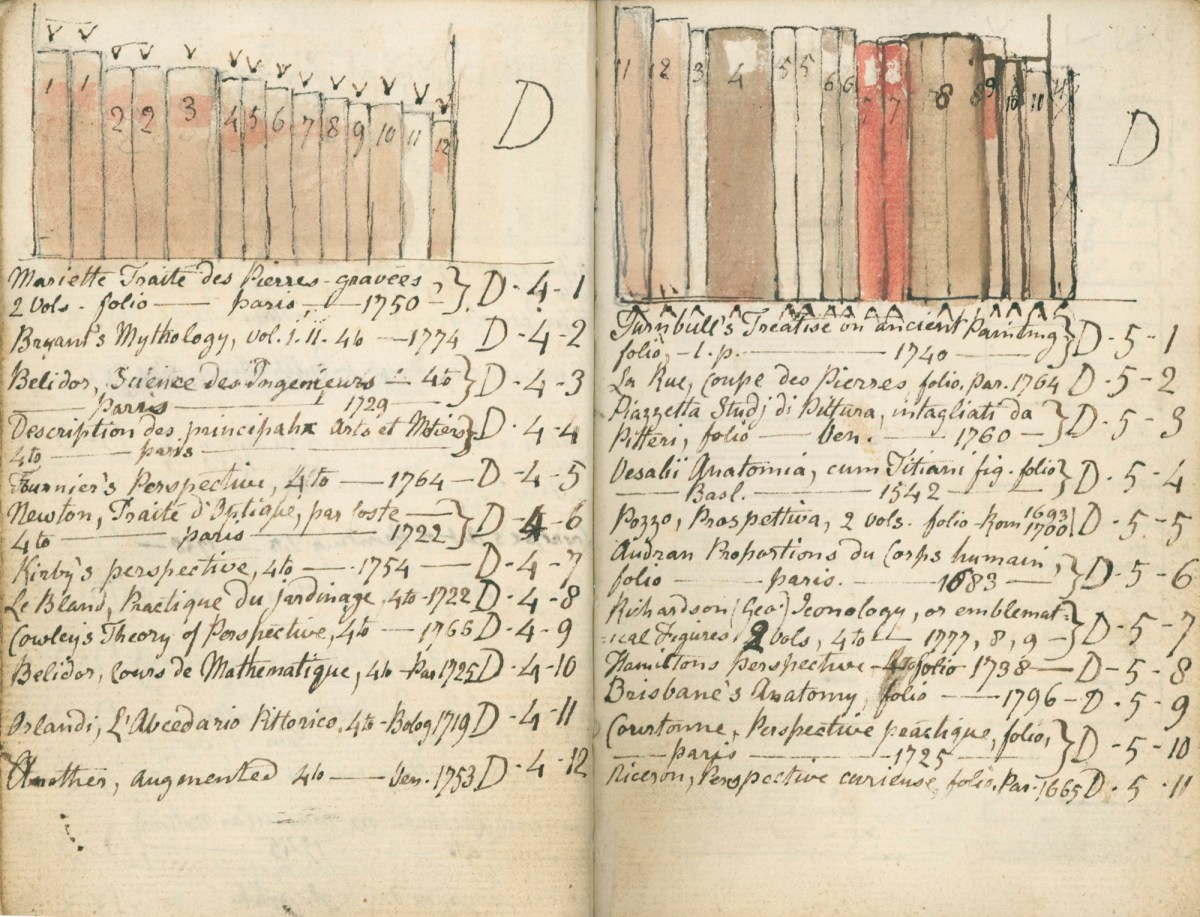 1 1 2 2 3 4 5 6 7 8 9 10 11 12
D
Mariette Traité des Pierres-gravées
2 Vols. folio — paris, — 1750 -}. D-4-1
Bryant's Mythology, vol. 1. 11. 4to — 1774 D-4-2
Belidor, Science des Ingenieurs — 4to
— Parris — 1729 } D-4-3
Description des principahx Arts et Metiers
4to — paris — } D-4-4
Fournier's Perspective, 4to — 1764 — D-4-5
Newton, Traité d'Optique, par Coste —
4to — paris — 1722 } D-4-6
Kirby's perspective, 4to — 1754 — D-4-7
Le Blanc, Practique du jardinage, 4to-1722 D-4-8
Cowley's Theory of Perspective, 4to — 1765 D-4-9
Belidor, Cours de Mathematique, 4to - Par 1725 D-4-10
Orlandi, L'Abcedario Pittorico, 4to - Bolog 1719 D-4-11
Another, augmented 4to — Ven. 1753 D-4-12
11 12 3 4 5 5 6 6 7 7 8 8 9 10 11
D
Turnbull's Treatise on ancient Painting
folio, - l. p. — 1740 — } D-5-1
La Rue, Coupe des Pierres folio. Par. 1764 D-5-2
Piazzetta Studj di Pittura, intagliati da
Pitteri, folio — Ven. — 1760 — } D-5-3
Vesalii Anatomia, cum Titiani fig. folio
— Basl. — 1542 — } D-5-4
Pozzo, Prospettiva, 2 vols. folio - Rom 1693 1700 } D-5-5
Audran Proportions du Corps humain,
folio — paris. — 1683 — } D-5-6
Richardson (Geo.) Iconology, or emblemat-
-ical Figures 2 vols, 4to — 1777, 8, 9 — } D-5-7
Hamiltons perspective folio 1738 — D-5-8
Brisbane's Anatomy, folio — 1796 - D-5-9
Courtonne, Perspective peactique, folio,
— paris — 1725 — } D-5-10
Niceron, Perspective curieuse, folio. Par. 1665 D-5-11